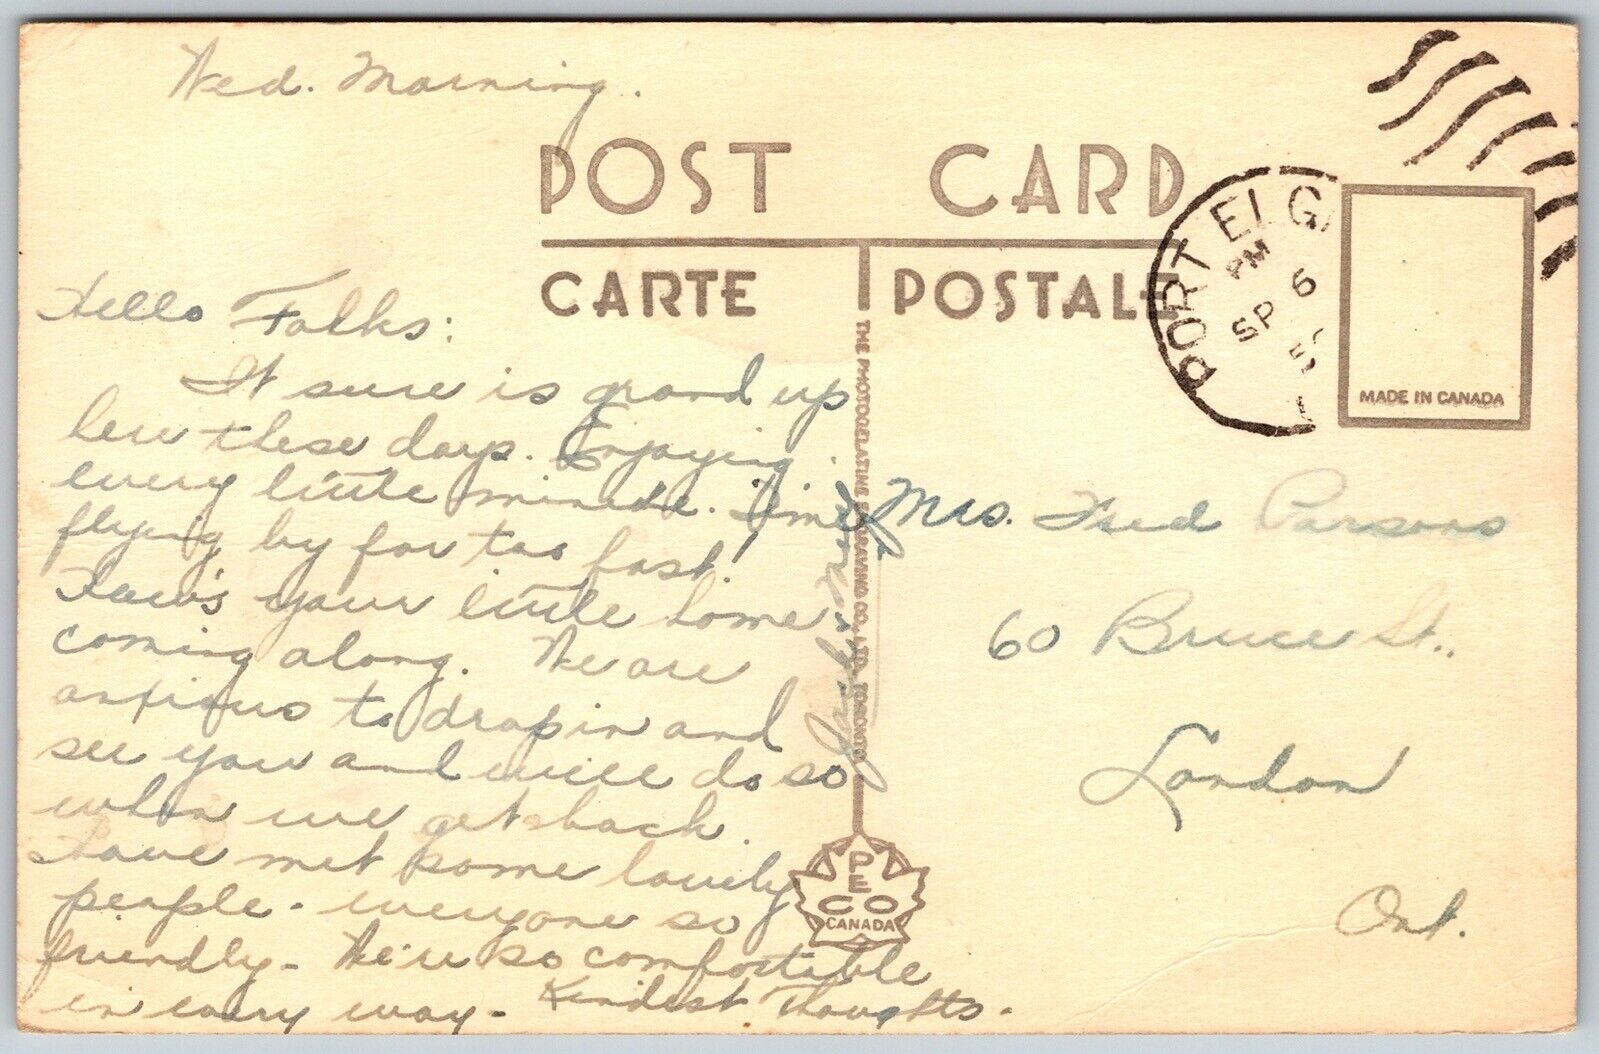 Wed. Morning.
POST CARD
CARTE POSTALE
PORT ELG
PM
SP 6
MADE IN CANADA
Hello Folks:
It sure is grand up
here these days. Enjoying
every little minute. Time
flying by far too fast!
How's your little home
coming along. We are
anxious to drop in and
see you and will do so
when we get back.
Have met some lovely
people - everyone so
friendly - We're so comfortable
in every way - Kindest Thoughts.
THE PHOTOGELATINE ENGRAVING CO., LTD. TORONTO
PECO
CANADA
Mrs. Fred Parsons
60 Bruce St.,
London
Ont.